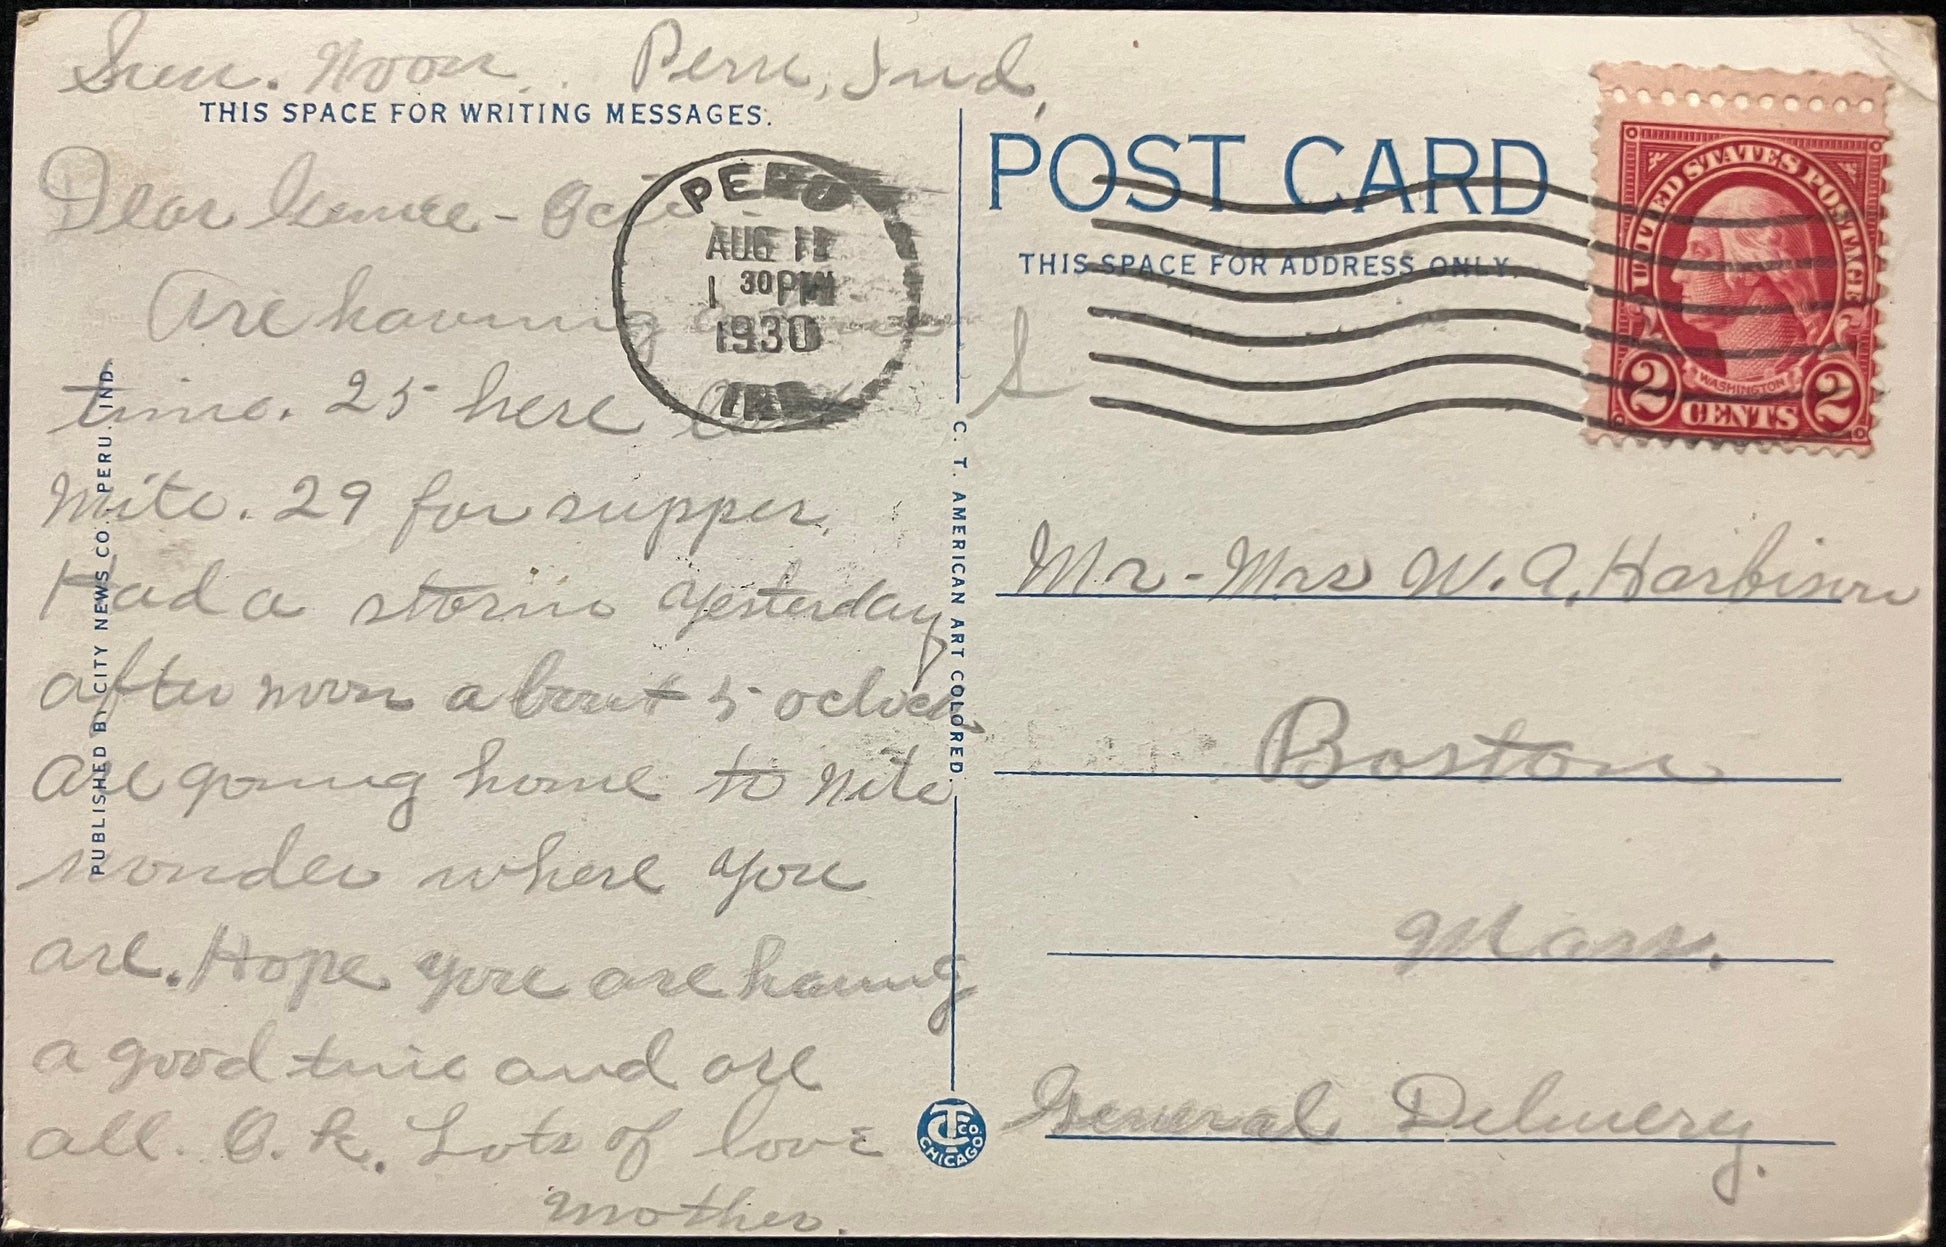 Sun. Noon. Peru, Ind,
THIS SPACE FOR WRITING MESSAGES.
Dear
Are having
time. 25 here
Nite. 29 for supper.
Had a storm yesterday
after noon about 5 oclock
are going home to nite
wonder where you
are. Hope you are having
a good time and are
all. O. K. Lots of love
Mother.
PUBLISHED BY CITY NEWS CO. PERU. IND.
PERU
AUG 11
1 30PM
1930
IND
C. T. AMERICAN ART COLORED.
C.T. & CO. CHICAGO
POST CARD
THIS SPACE FOR ADDRESS ONLY.
UNITED STATES POSTAGE
WASHINGTON
2 CENTS 2
Mr - Mrs W. A. Harbison
Boston
Mass.
General Delivery.